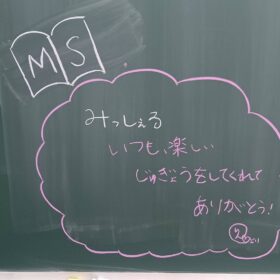 MS
みっしぇる
いつも、楽しい
じゅぎょうをしてくれて
ありがとう!